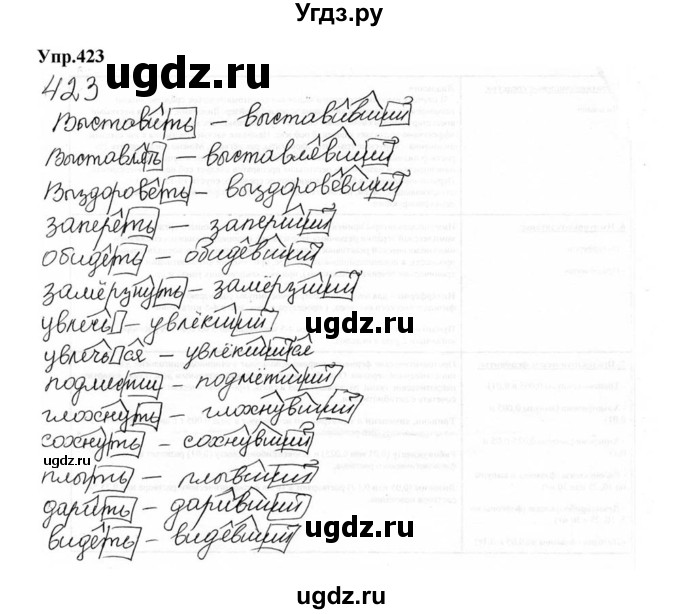 Угдз.ру
Упр.423
423
ugdz.ru
Выставить – выставивший
Выставлять – выставлевший
Выздороветь – выздоровевший
запереть – заперший
обидеть – обидевший
замёрзнуть – замёрзший
ugdz.ru
увлечь – увлёкший
увлечься – увлёкшийся
подмести – подмётший
глохнуть – глохнувший
сохнуть – сохнувший
ugdz.ru
плыть – плывший
дарить – даривший
ugdz.ru
видеть – видевший
ugdz.ru